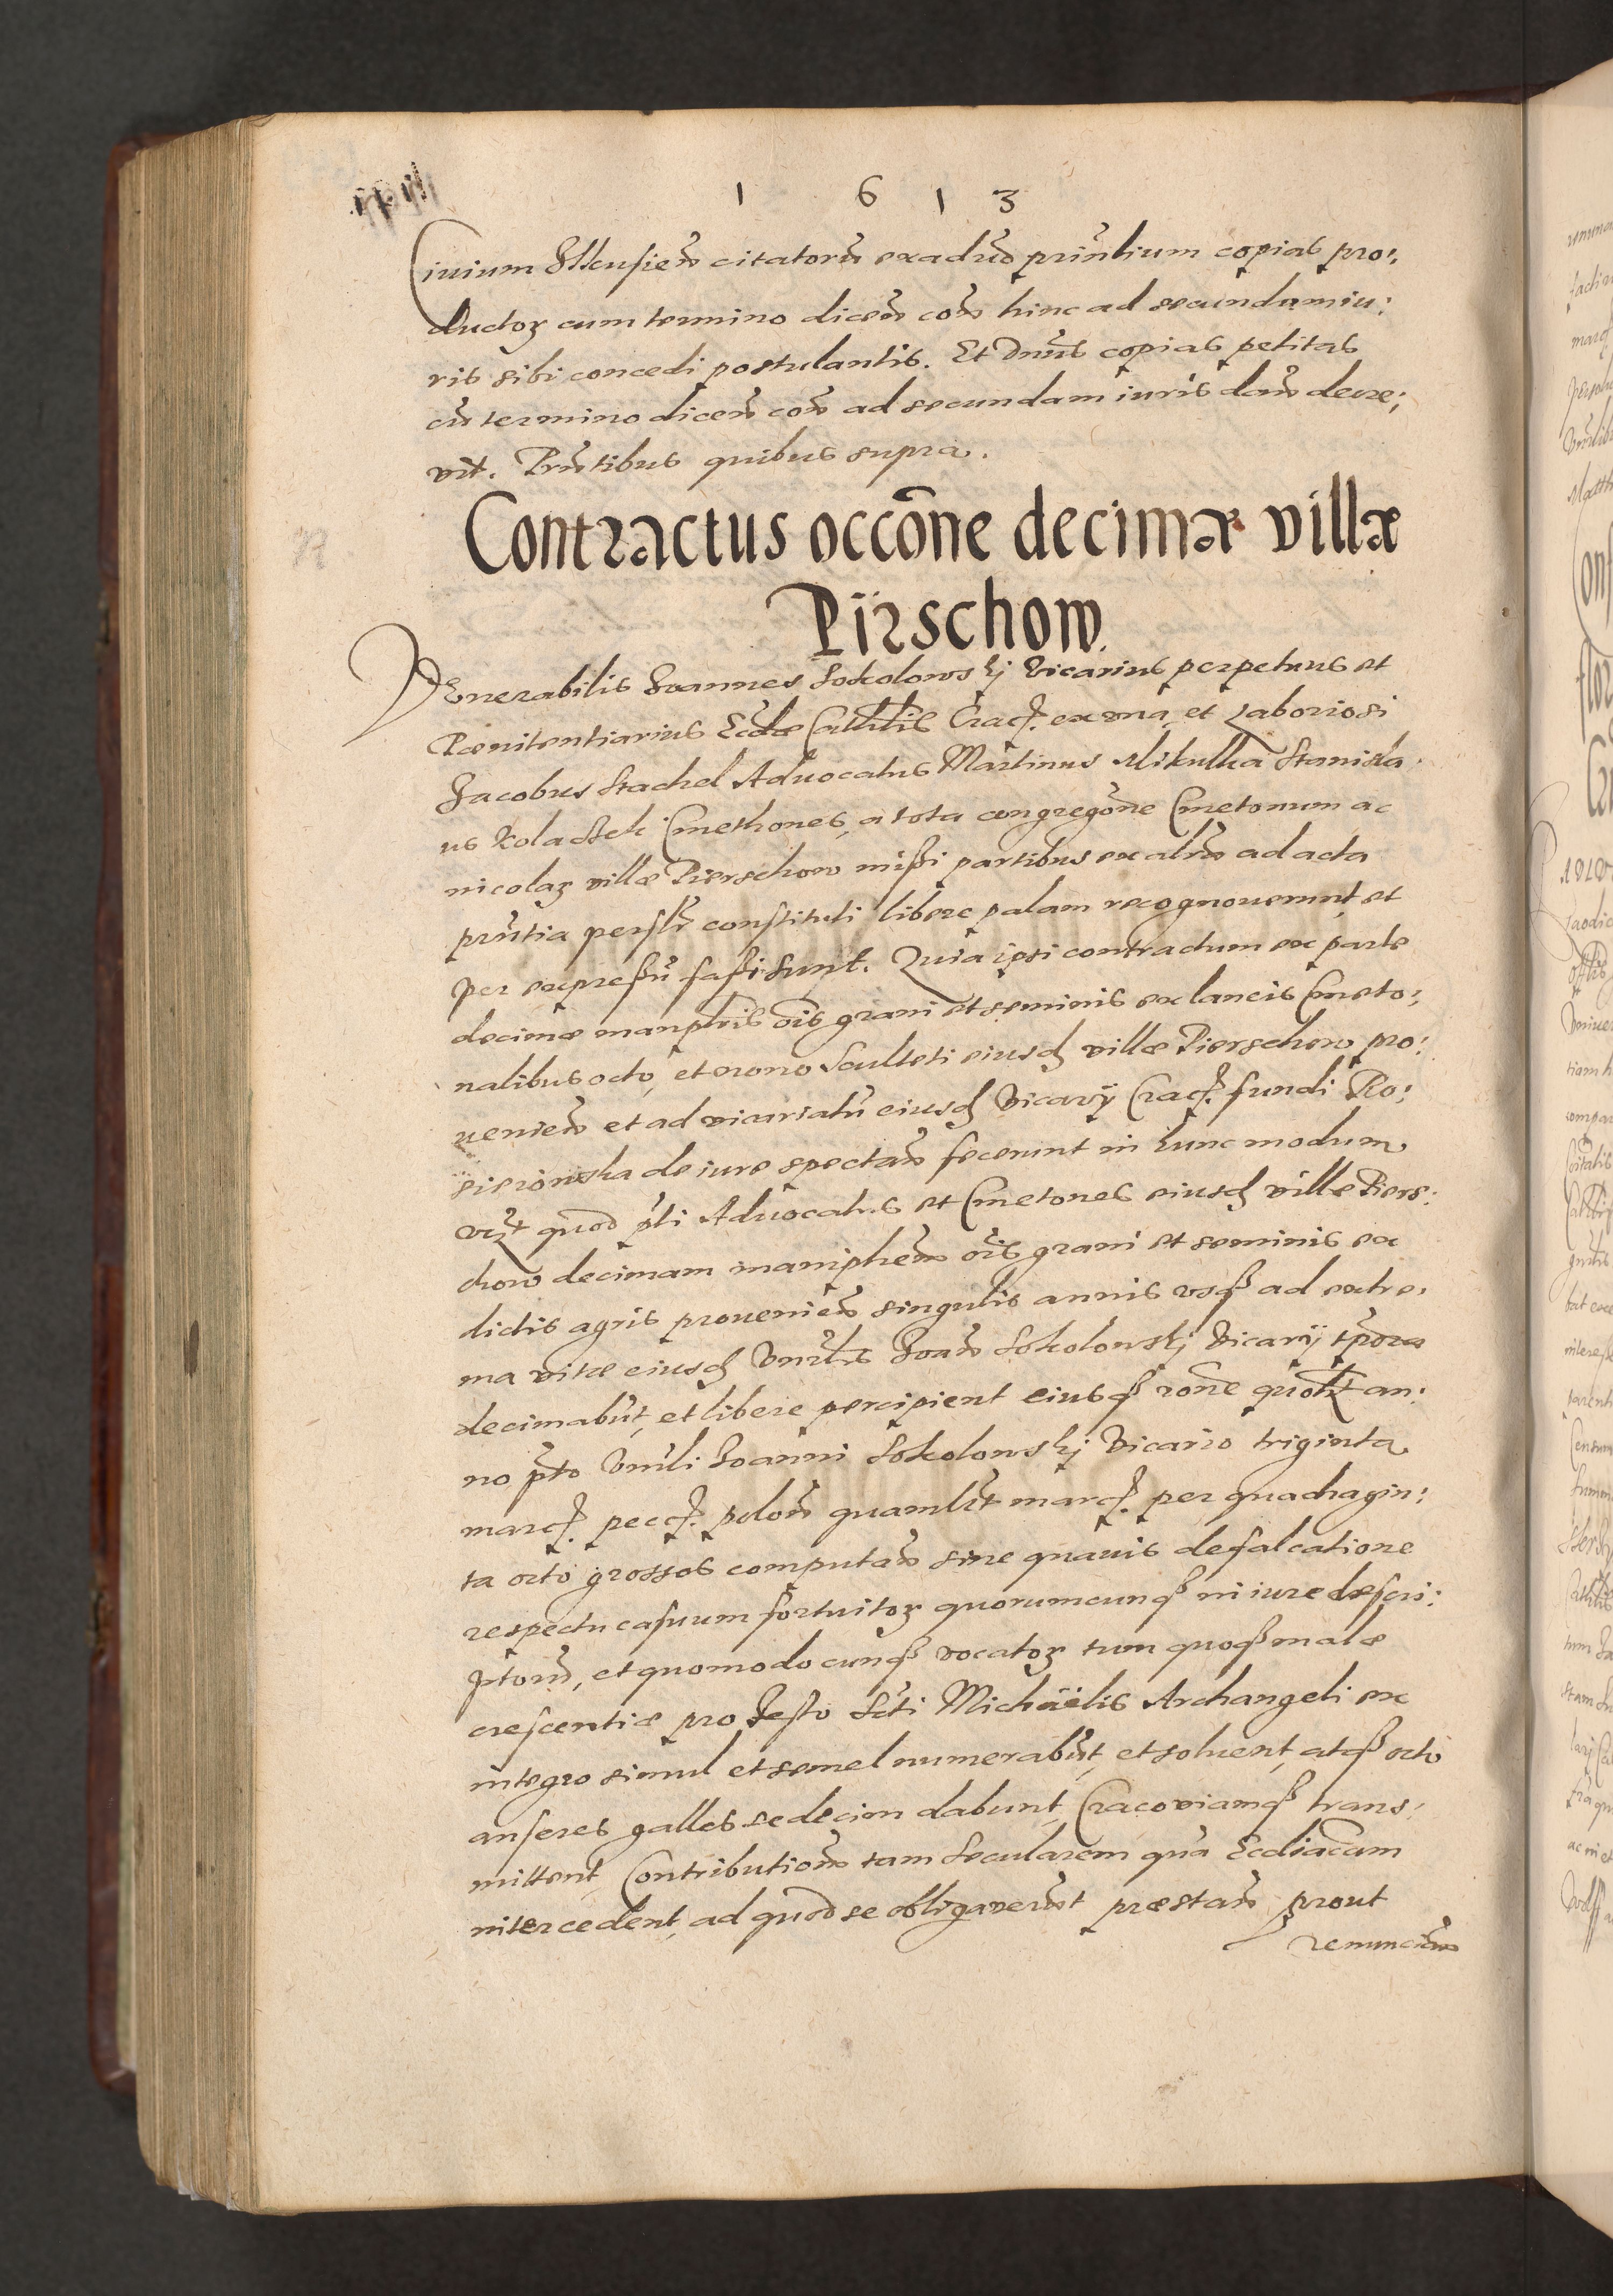 1 6 1 3
Ciuium Ilkusien̄ citatorū ex aduo prn̄tium copias pro:
ductoꝝ cum termino dicen̄ con̄ hinc ad secundam iu:
ris sibi concedi postulantis. Et Dnūs copias petitas
cū termino dicen̄ con̄ ad secundam iuris dan̄ decre:
vit. Prn̄tibus quibus supra.
Contractus occōne decimæ villæ
Pirschow.
VEnerabilis Joannes Sokolowskj Vicarius perpetuus et
Pœnitentiarius Ecclæ Cathlis Cracꝭ. ex vna, et Laboriosi
Jacobus Stachel Aduocatus Martinus Mikulka Stanisla
us Kolaczek Cmethones, a tota congregōne Cmetonum ac
nicolaꝝ villæ Pierschow mißi partibus ex altrā ad acta
prn̄tia persłr constituti libere palam recognouerunt, et
per expreßū faßi sunt. Quia ipsi contractum ex parte
decimæ maniplris ois grani et seminis ex laneis Cmeto:
nalibus octo, et nono Sculteti eiusd villæ Pierschow pro:
uenien̄ et ad vicariatū eiusd Vicarÿ Cracꝭ. fundi Ro:
sieiowska de iure spectan̄ fecerunt in hunc modum
vizt quod pti Aduocatus et Cmetones eiusd villæ Piers:
chow decimam maniplrem ois grani et seminis ex
dictis agris prouenien̄ singulis annis vsqꝫ ad extre:
ma vitæ eiusd Vnrlis Joan̄ Sokolowskj Vicarÿ tpora
decimabūt, et libere percipient eiusqꝫ rōne quolt an:
no pto Vnrli Joanni Sokolowskj Vicario triginta
marcꝭ. pecꝭ. polon̄ quamlt marcꝭ. per quadragin:
ta octo grossos computan̄ sine quauis defalcatione
respectu casuum fortuitoꝝ quorumcunqꝫ in iure descri:
ptorū, et quomodocunqꝫ vocatoꝝ tum quoqꝫ malæ
crescentiæ pro Festo Scti Michäelis Archangeli ex
integro simul et semel numerabūt, et soluent, atqꝫ octo
anseres gallos sedecim dabunt, Cracoviamqꝫ trans:
mittent, Contribution̄ tam Secularem quā Ecclīacam
intercedent, ad quod se obligaverūt præstan̄ prout
renuncian̄